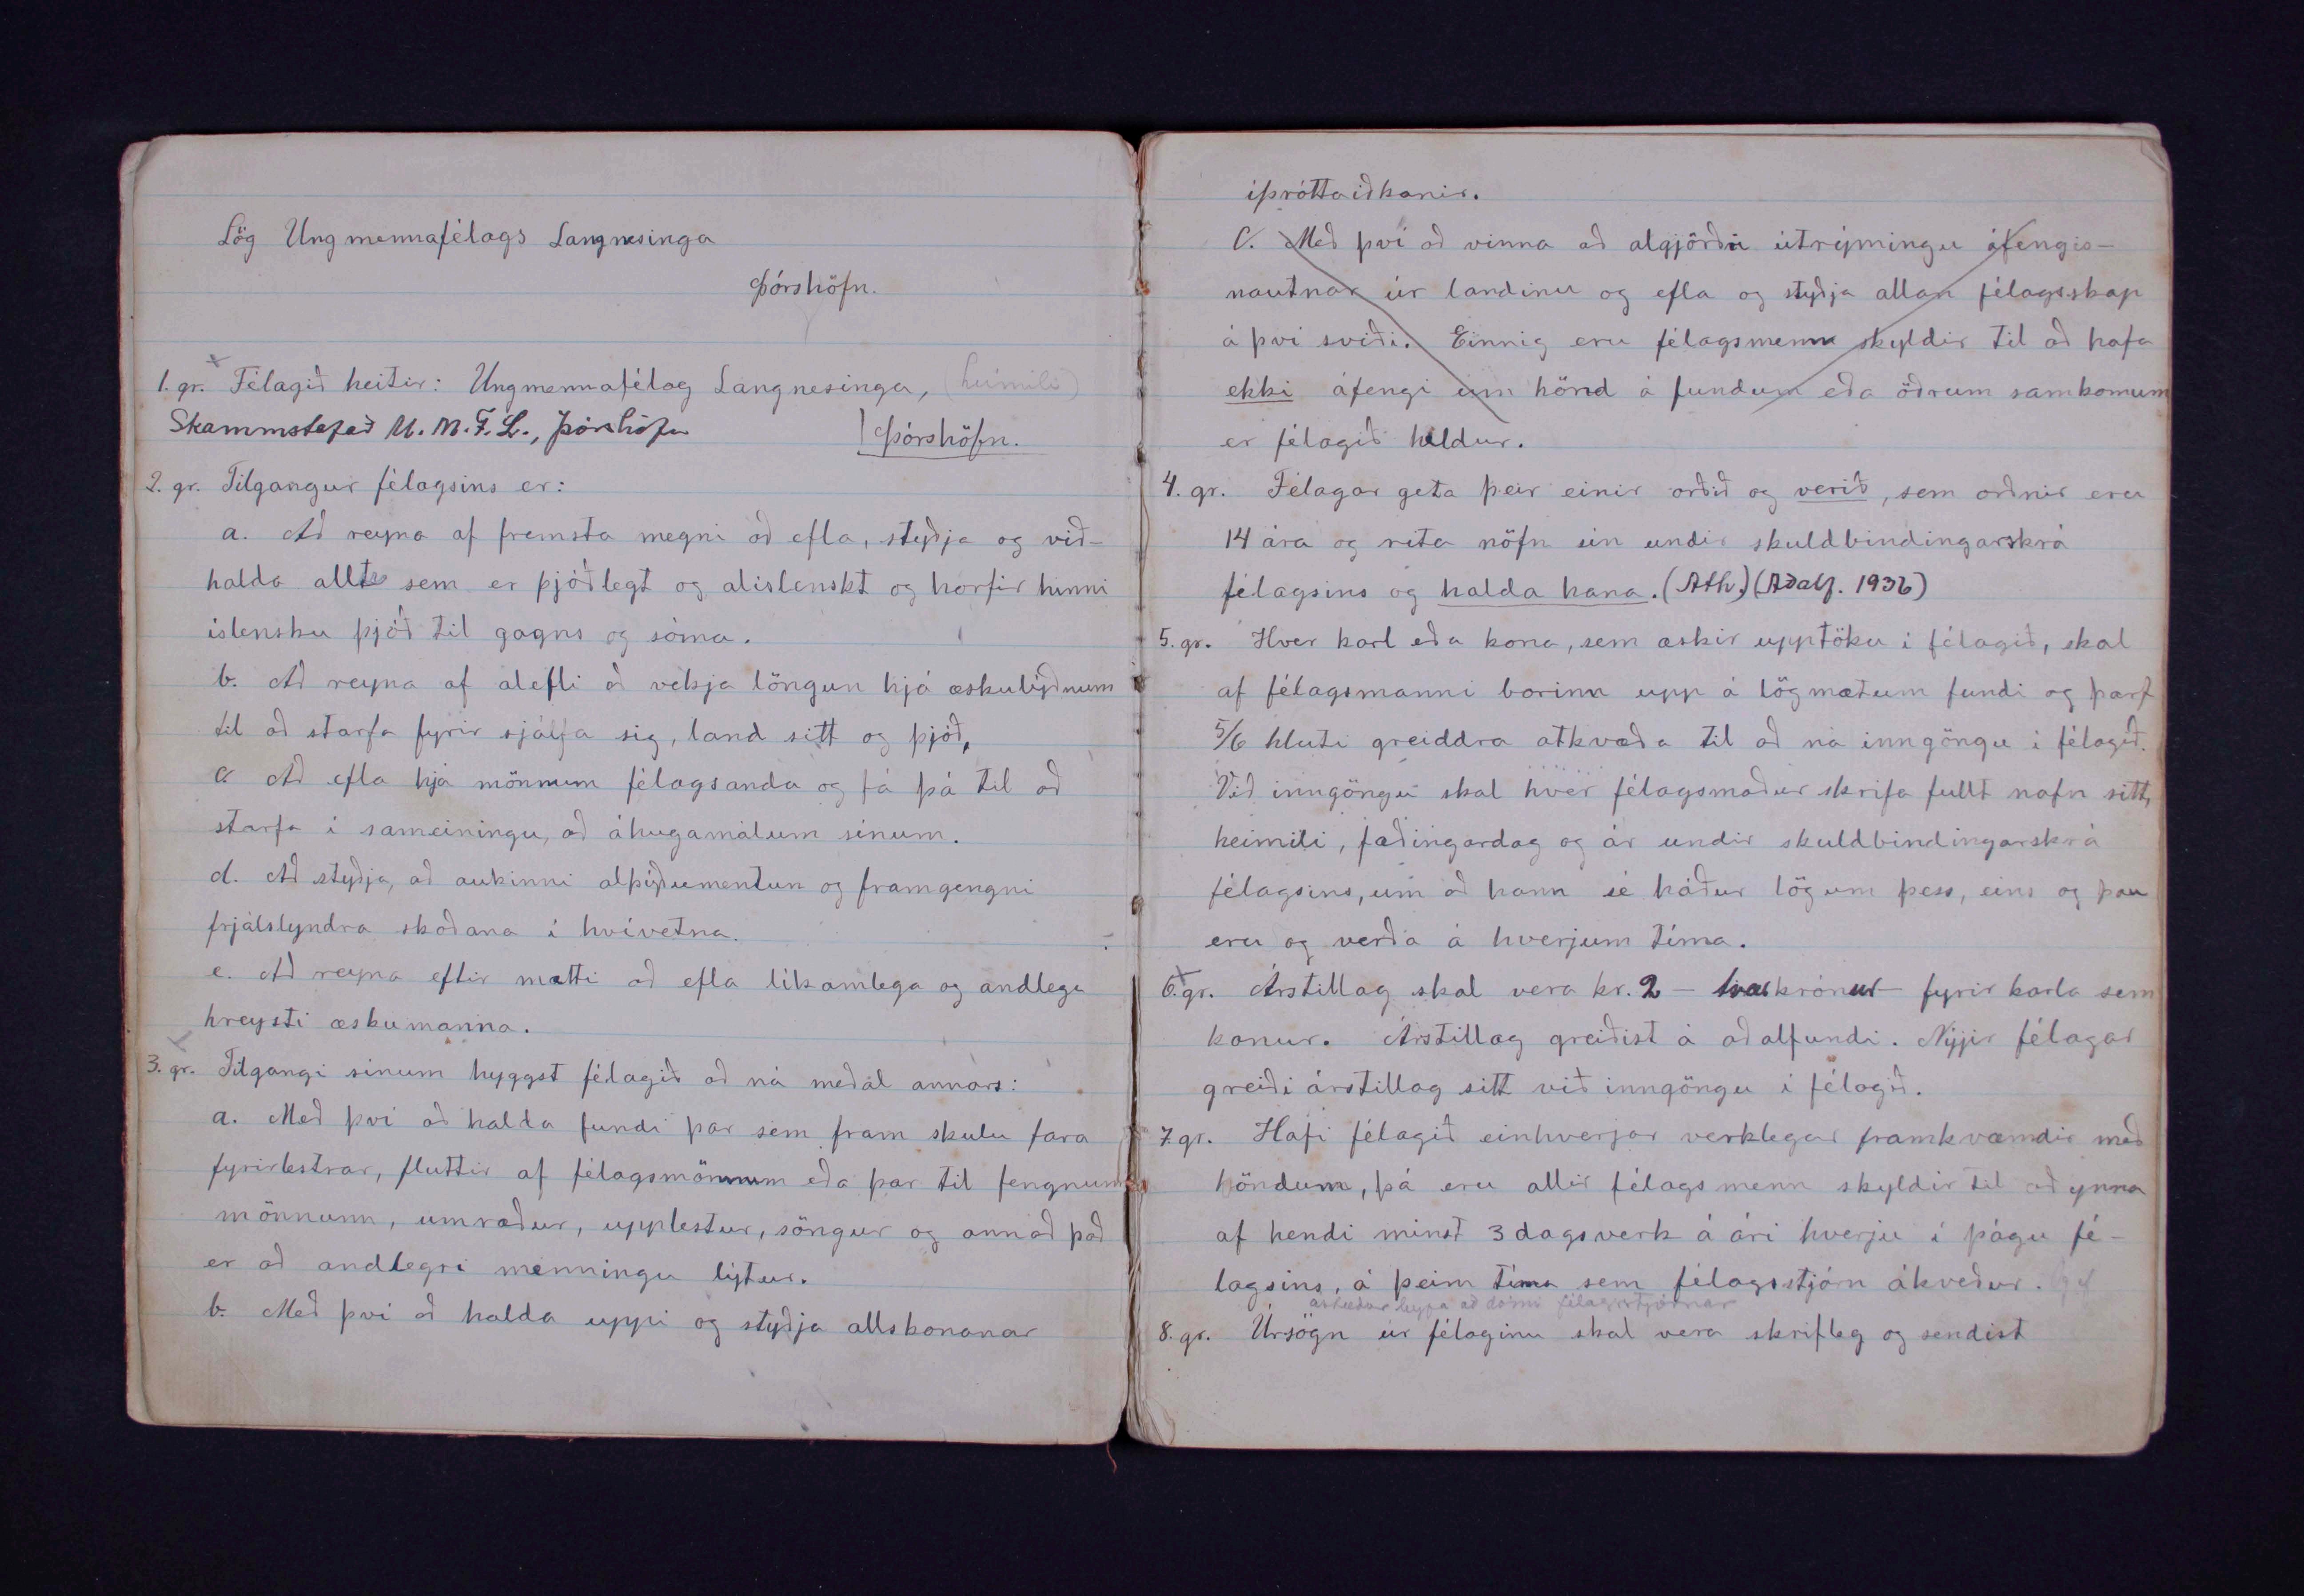 Lög Ungmennafélags Langnesinga
Þórshöfn.
1. gr. Félagið heitir: Ungmennafélag Langnesinga, (heimili)
Skammstafað U.M.F.L., Þórshöfn
Þórshöfn.
2. gr. Tilgangur félagsins er:
a. Að reyna af fremsta megni að efla, styðja og við-
halda allt sem er þjóðlegt og alíslenskt og horfir hinni
íslensku þjóð til gagns og sóma.
b. Að reyna af alefli að vekja löngun hjá æskulýðnum
til að starfa fyrir sjálfa sig, land sitt og þjóð,
c Að efla hjá mönnum félagsanda og fá þá til að
starfa í sameiningu, að áhugamálum sínum.
d. Að styðja, að aukinni alþýðumentun og framgengni
frjálslyndra skoðana í hvívetna.
e. Að reyna eftir mætti að efla líkamlega og andlega
hreysti æskumanna.
3. gr. Tilgangi sínum hyggst félagið að ná meðal annars:
a. Með því að halda fundi þar sem fram skulu fara
fyrirlestrar, fluttir af félagsmönnum eða þar til fengnum
mönnum, umræður, upplestur, söngur og annað það
er að andlegri menningu lýtur.
b. Með því að halda uppi og styðja allskonanar
íþróttaiðkanir.
C. Með því að vinna að algjörðu útrýmingu áfengis-
nautnar úr landinu og efla og styðja allan félagsskap
á því sviði. Einnig eru félagsmenn skyldir til að hafa
ekki áfengi um hönd á fundum eða öðrum samkomum
er félagið heldur.
4. gr. Félagar geta þeir einir orðið og verið, sem orðnir eru
14 ára og rita nöfn sín undir skuldbindingarskrá
félagsins og halda hana. (Ath.) (Aðalf. 1936)
5. gr. Hver karl eða kona, sem æskir upptöku í félagið, skal
af félagsmanni borinn upp á lögmætum fundi og þarf
5/6 hluti greiddra atkvæða til að ná inngöngu í félagið.
Við inngöngu skal hver félagsmaður skrifa fullt nafn sitt,
heimili, fæðingardag og ár undir skuldbindingarskrá
félagsins, um að hann sé háður lögum þess, eins og þau
eru og verða á hverjum tíma.
6. gr. Árstillag skal vera kr. 2 - tvær krónur - fyrir karla sem
konur. Árstillag greiðist á aðalfundi. Nýjir félagar
greiði árstillag sitt við inngöngu í félagið.
7. gr. Hafi félagið einhverjar verklegar framkvæmdir með
höndum, þá eru allir félagsmenn skyldir til að ynna
af hendi minst 3 dagsverk á ári hverju í þágu fé-
lagsins, á þeim tíma sem félagsstjórn ákveður.
að dómi félagsstjórnar
8. gr. Úrsögn úr félaginu skal vera skrifleg og sendist